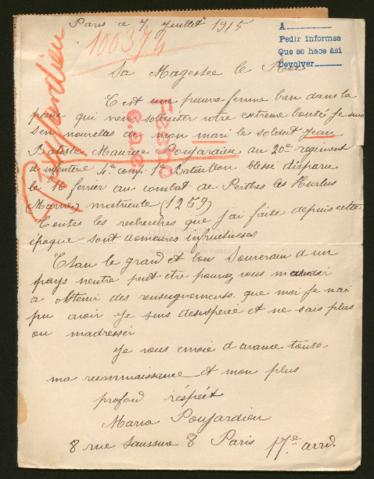 Paris ce 7 Juillet 1915
10037/4
A
Pedir informes
Que se hace ási
Devolver
Sa Magestée le Roi
C'est une pauvre femme bien dans la
peine qui vient soliciter votre extreme bonté je suis
sen nouvelles de mon mari le soldat Jean
Batiste Maurice Poujardieu au 20e regiment
d'infenterie 4e comp. 1e Bataillon blessé disparu
le 16 fevrier au combat de Perthes les Hurlus
Marne, matricule (1269)
Toutes les recherches que j'ai faite depuis cette
époque sont demeures infructueuses
Etan le grand et bon Souverain d'un
pays neutre peut-etre pourez vous
a obtenir des renseignements que moi je n'ai
pu avoir je suis desespéreé et ne sais plus
ou m'adressér
Je vous envoie d'avance toute
ma reconnaissance et mon plus
profond réspéct
Maria Poujardieu
8 rue Saussure 8 Paris 17e arrd.
Poujardieu